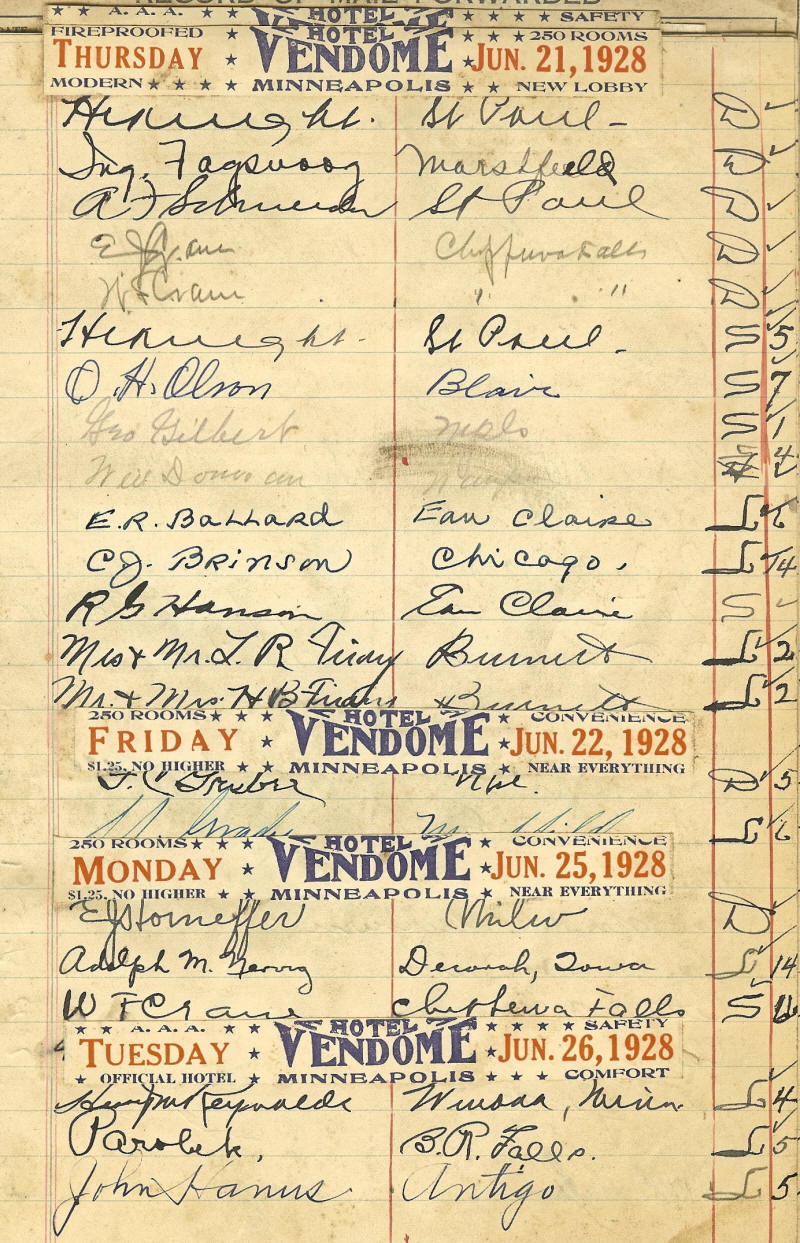 RECORD OF MAIL FORWARDED
★ ★ A. A. A. ★ ★ HOTEL ★ ★ ★ SAFETY
FIREPROOFED ★ HOTEL ★ 250 ROOMS
THURSDAY ★ VENDOME ★ JUN. 21, 1928
MODERN ★ ★ ★ ★ MINNEAPOLIS ★ ★ NEW LOBBY
St Paul - D ✓
Ing. Marshfield D ✓
A F Schneider St Paul D ✓
Chippewa Falls D ✓
W F Crane " " D ✓
St Paul - S 5
O. H. Olson Blair S 7
Geo Gilbert Mpls S 1
4
E. R. Ballard Eau Claire L 6
C. J. Brinson Chicago. L 14
R G Hanson Eau Claire S ✓
Mrs & Mr. L. R Burnett L 2
Mr. & Mrs. H B Burnett L 2
250 ROOMS ★ ★ ★ HOTEL ★ CONVENIENCE
FRIDAY ★ VENDOME ★ JUN. 22, 1928
$1.25, NO HIGHER ★ ★ MINNEAPOLIS ★ NEAR EVERYTHING
Gruber D 5
L 6
250 ROOMS ★ ★ ★ HOTEL ★ CONVENIENCE
MONDAY ★ VENDOME ★ JUN. 25, 1928
$1.25, NO HIGHER ★ ★ MINNEAPOLIS ★ NEAR EVERYTHING
E J Horneffer Milw D
Adolph M. Decorah, Iowa L 14
W F Crane Chippewa Falls S
★ ★ A. A. A. ★ ★ HOTEL ★ ★ ★ SAFETY
TUESDAY ★ VENDOME ★ JUN. 26, 1928
★ OFFICIAL HOTEL ★ MINNEAPOLIS ★ ★ ★ COMFORT
Reynolds Winona, Minn. L 4
Parolek, B. R. Falls. L 5
John Hanus Antigo L 5